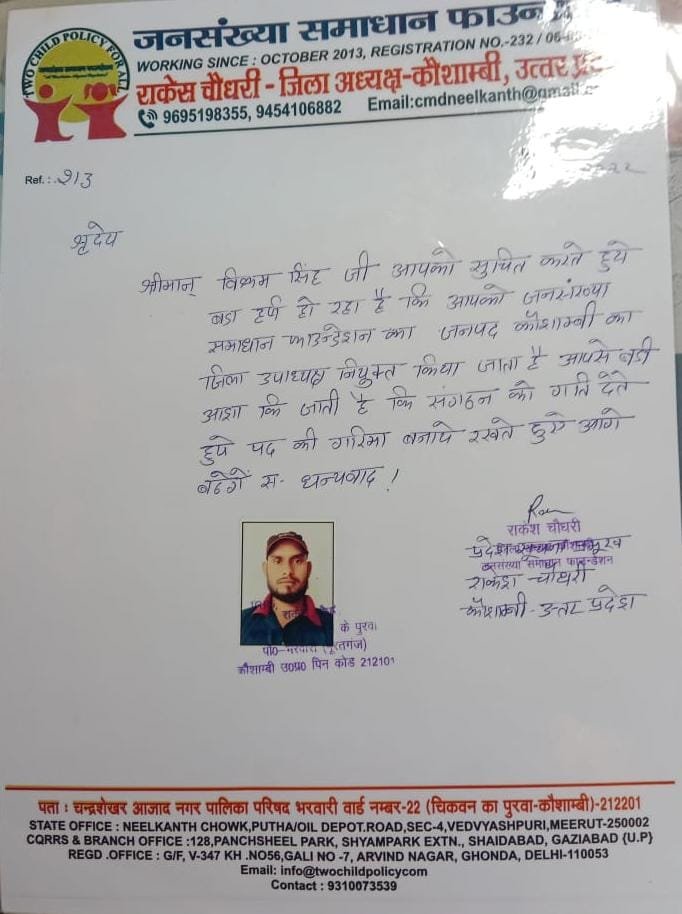 TWO CHILD POLICY FOR ALL
जनसंख्या समाधान फाउन
WORKING SINCE : OCTOBER 2013, REGISTRATION NO.-232 / 06-
राकेस चौधरी - जिला अध्यक्ष-कौशाम्बी, उत्तर प्रदे
9695198355, 9454106882 Email:cmdneelkanth@gmail.c
Ref. : 913
श्रृदेय
श्रीमान् विक्रम सिंह जी आपको सुचित करते हुये
बडा हर्ष हो रहा है कि आपको जनसंख्या
समाधान फाउन्डेशन का जनपद कौशाम्बी का
जिला उपाध्यक्ष नियुक्त किया जाता है आपसे बडी
आशा कि जाती है कि संगठन को गति देते
हुये पद की गरिमा बनाये रखते हुए आगे
बढेगें स- धन्यवाद !
राकेश चौधरी
प्रदेश
जनसंख्या समाधान फाउन्डेशन
राकेश चौधरी
कौशाम्बी - उत्तर प्रदेश
के पुरवा
पो०-भरवारी (पूरतगंज)
कौशाम्बी उ0प्र0 पिन कोड 212101
पता : चन्द्रशेखर आजाद नगर पालिका परिषद भरवारी वार्ड नम्बर-22 (चिकवन का पुरवा-कौशाम्बी)-212201
STATE OFFICE : NEELKANTH CHOWK,PUTHA/OIL DEPOT.ROAD,SEC-4,VEDVYASHPURI,MEERUT-250002
CQRRS & BRANCH OFFICE :128,PANCHSHEEL PARK, SHYAMPARK EXTN., SHAIDABAD, GAZIABAD {U.P}
REGD .OFFICE : G/F, V-347 KH .NO56,GALI NO -7, ARVIND NAGAR, GHONDA, DELHI-110053
Email: info@twochildpolicy.com
Contact : 9310073539